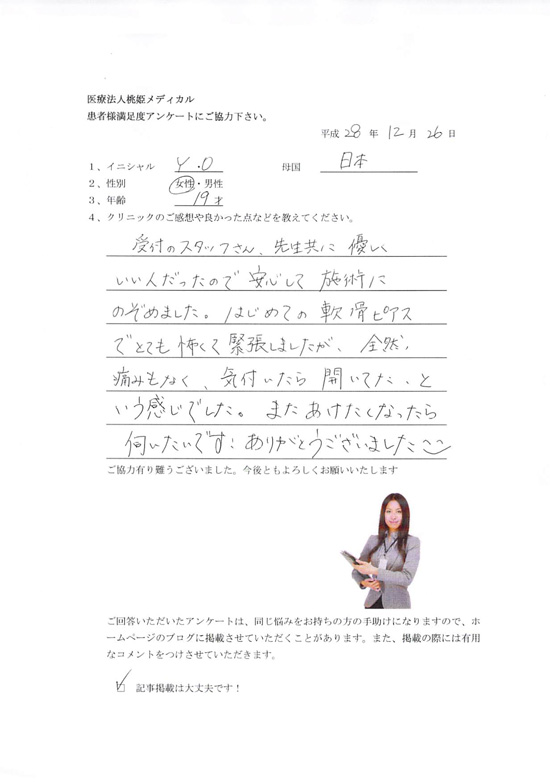 医療法人桃姫メディカル
患者様満足度アンケートにご協力下さい。
平成 28 年 12 月 26 日
1、イニシャル Y.O 母国 日本
2、性別 女性・男性
3、年齢 19才
4、クリニックのご感想や良かった点などを教えてください。
受付のスタッフさん、先生共に優しく
いい人だったので安心して施術に
のぞめました。はじめての軟骨ピアス
でとても怖くて緊張しましたが、全然、
痛みもなく、気付いたら開いてた、と
いう感じでした。またあけたくなったら
伺いたいです!ありがとうございました
ご協力有り難うございました。今後ともよろしくお願いいたします
ご回答いただいたアンケートは、同じ悩みをお持ちの方の手助けになりますので、ホ
ームページのブログに掲載させていただくことがあります。また、掲載の際には有用
なコメントをつけさせていただきます。
☑ 記事掲載は大丈夫です!